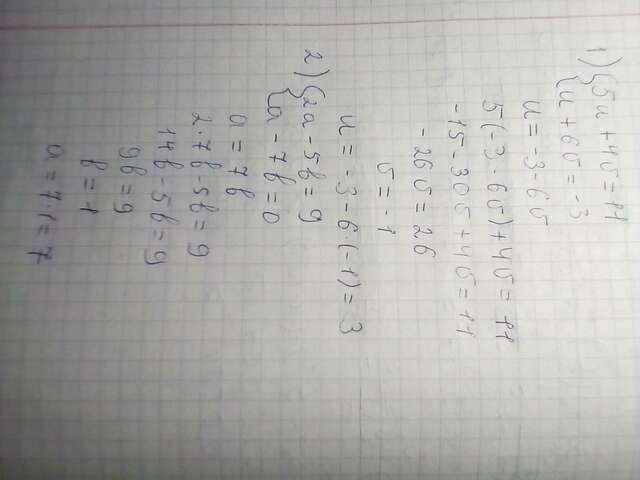 1) {5u + 4v = 11
{u + 6v = -3
u = -3 - 6v
5(-3 - 6v) + 4v = 11
-15 - 30v + 4v = 11
-26v = 26
v = -1
u = -3 - 6·(-1) = 3
2) {2a - 5b = 9
{a - 7b = 0
a = 7b
2·7b - 5b = 9
14b - 5b = 9
9b = 9
b = 1
a = 7·1 = 7